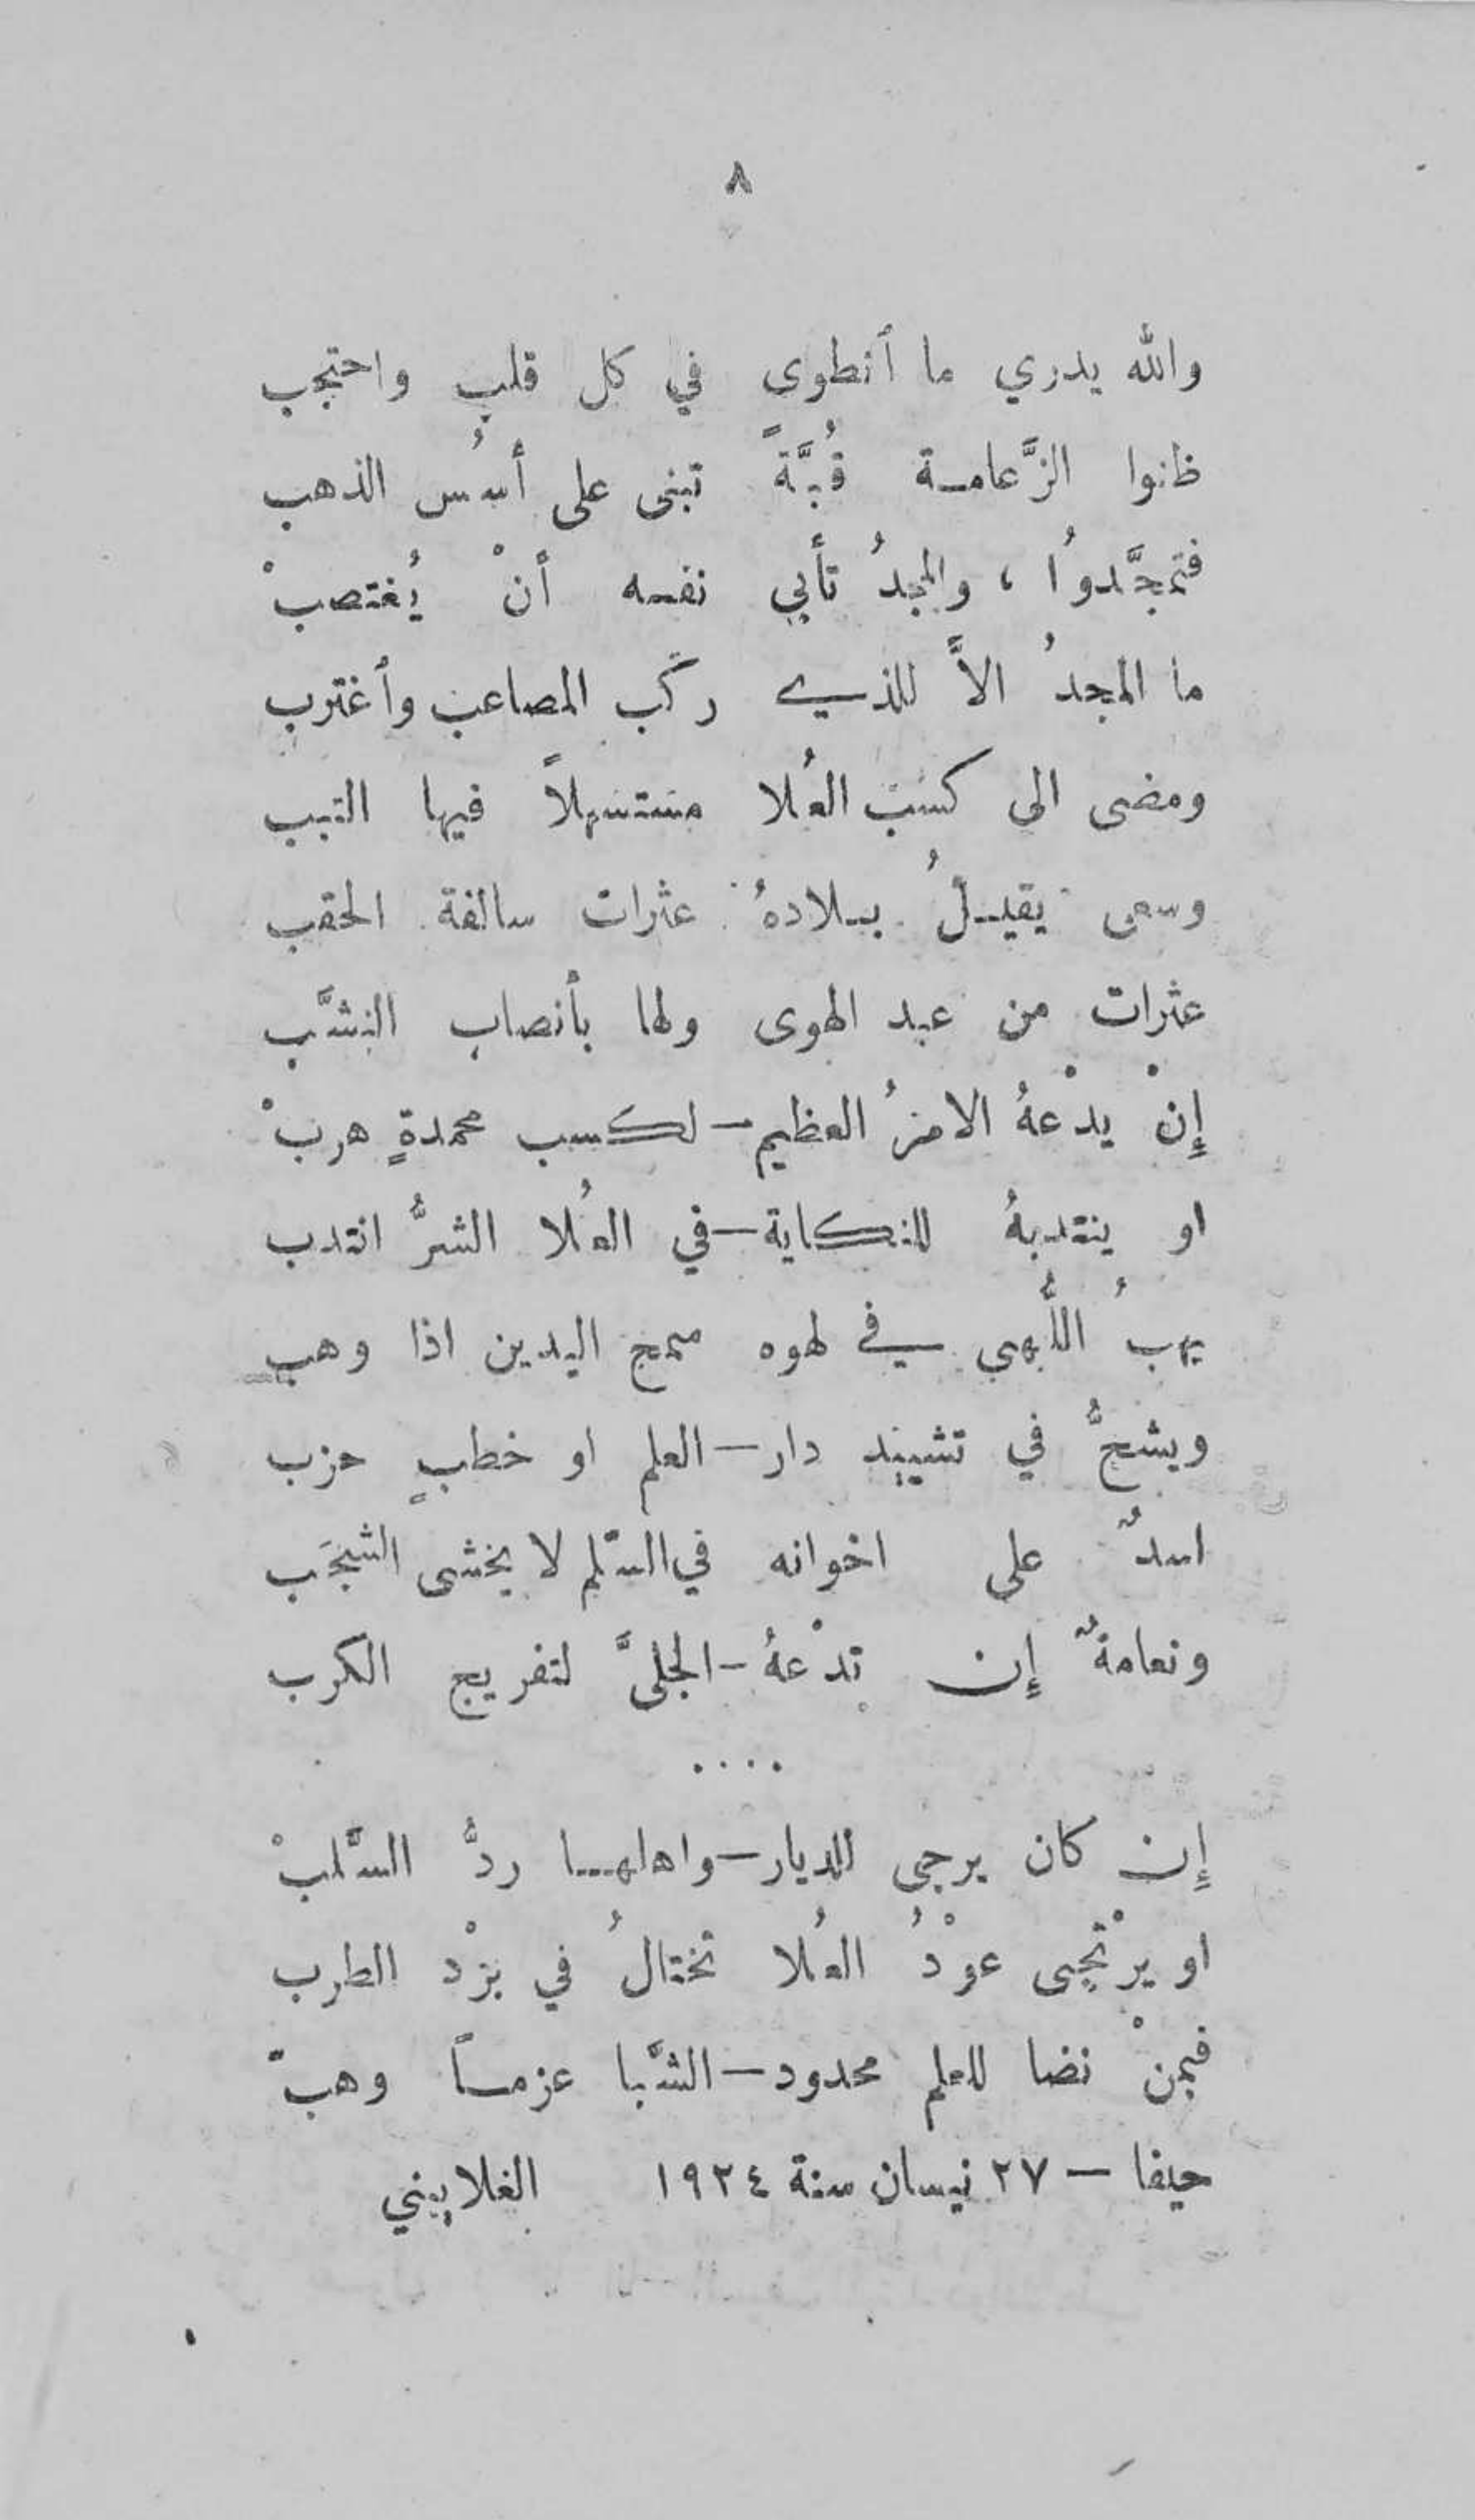 ٨
والله يدري ما أنطوى في كل قلبٍ واحتجب
ظنوا الزَّعامة قُبَّةً تبنى على أُسُس الذهب
فتمجَّدوا ، والمجدُ تأبي نفسه أنْ يُغتصبْ
ما المجدُ الاَّ للذي ركب المصاعب وأغترب
ومضى الى كسب العُلا مستسهلاً فيها التبب
وسعى يقيلُ بلادهُ عثرات سالفة الحقب
عثرات من عبد الهوى ولها بأنصاب النشَب
إِنْ يدْعهُ الامرُ العظيم–لكسب محمدةٍ هربْ
او ينتدبهُ للنكاية–في العُلا الشرُّ انتدب
يهبُ اللُّهى في لهوه سمح اليدين اذا وهب
ويشحُّ في تشييد دار–العلم او خطبٍ حزب
اسدٌ على اخوانه في السّلم لا يخشى الشجَب
ونعامةٌ إِن تدْعهُ–الجلىَّ لتفريج الكرب
....
إِن كان يرجى للديار–واهلها ردُّ السَّلبْ
او يرْتجى عوْدُ العُلا تختالُ في برْد الطرب
فبمنْ نضا للعلم محدود–الشَّبا عزماً وهبّ
حيفا – ٢٧ نيسان سنة ١٩٢٤ الغلاييني